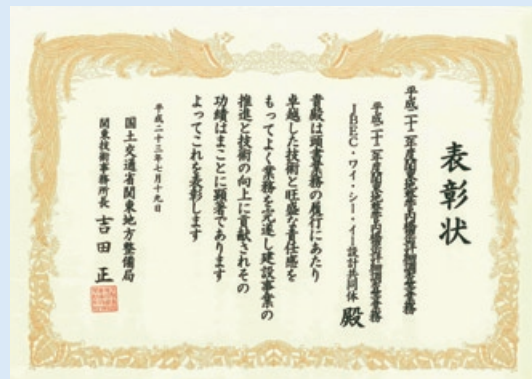 表彰状
平成二十二年度関東地整管内橋梁詳細調査等業務
平成二十二年度関東地整管内橋梁詳細調査等業務
JBEC・ワイ・シー・イー設計共同体 殿
貴殿は頭書業務の履行にあたり
卓越した技術と旺盛な責任感を
もってよく業務を完遂し建設事業の
推進と技術の向上に貢献されその
功績はまことに顕著であります
よってこれを表彰します
平成二十三年七月十九日
国土交通省関東地方整備局
関東技術事務所長 吉田 正